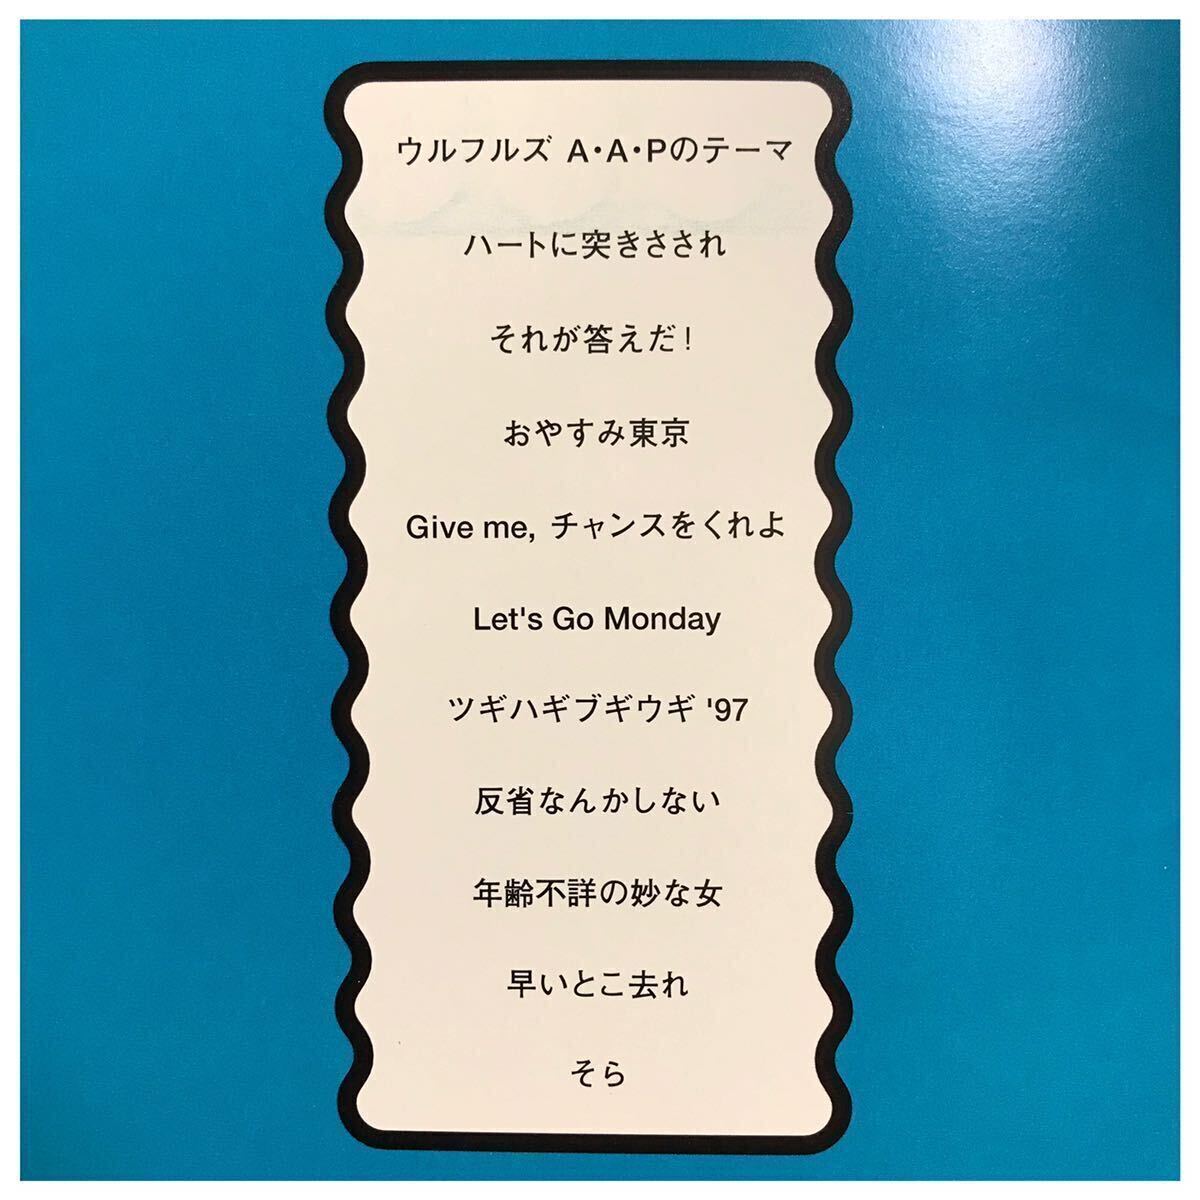 ウルフルズ A・A・Pのテーマ
ハートに突きさされ
それが答えだ!
おやすみ東京
Give me, チャンスをくれよ
Let's Go Monday
ツギハギブギウギ '97
反省なんかしない
年齢不詳の妙な女
早いとこ去れ
そら